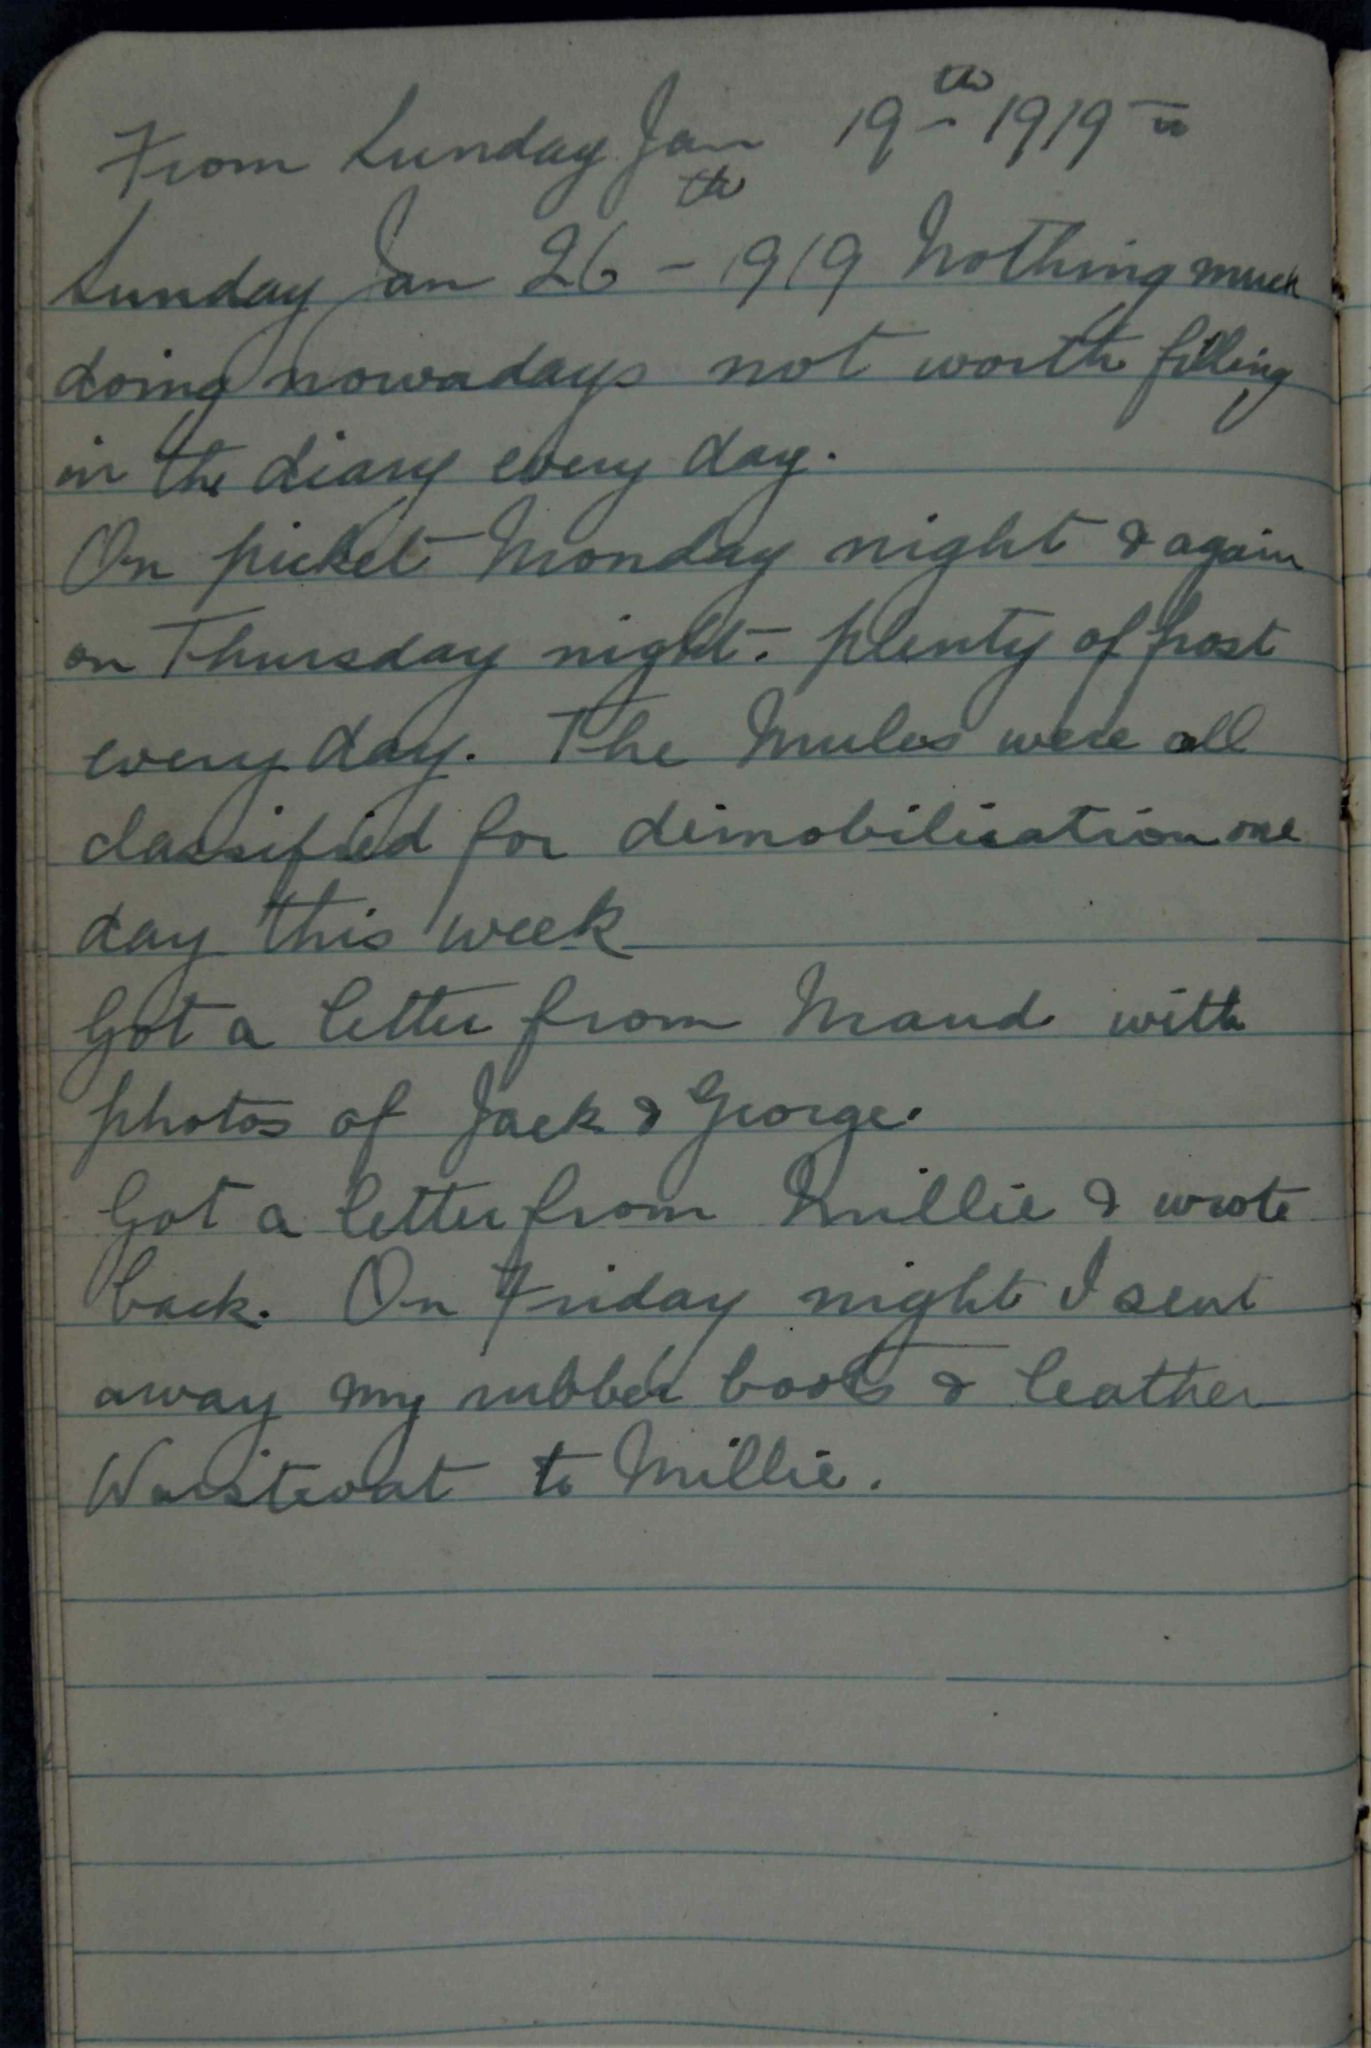 From Sunday Jan 19th 1919 to
Sunday Jan 26th 1919 Nothing much
doing nowadays not worth filling
in the diary every day.
On picket Monday night & again
on Thursday night. plenty of frost
every day. The Mules were all
classified for demobilisation one
day this week
Got a letter from Maud with
photos of Jack & George.
Got a letter from Millie & wrote
back. On Friday night I sent
away my rubber boots & leather
Waistcoat to Millie.